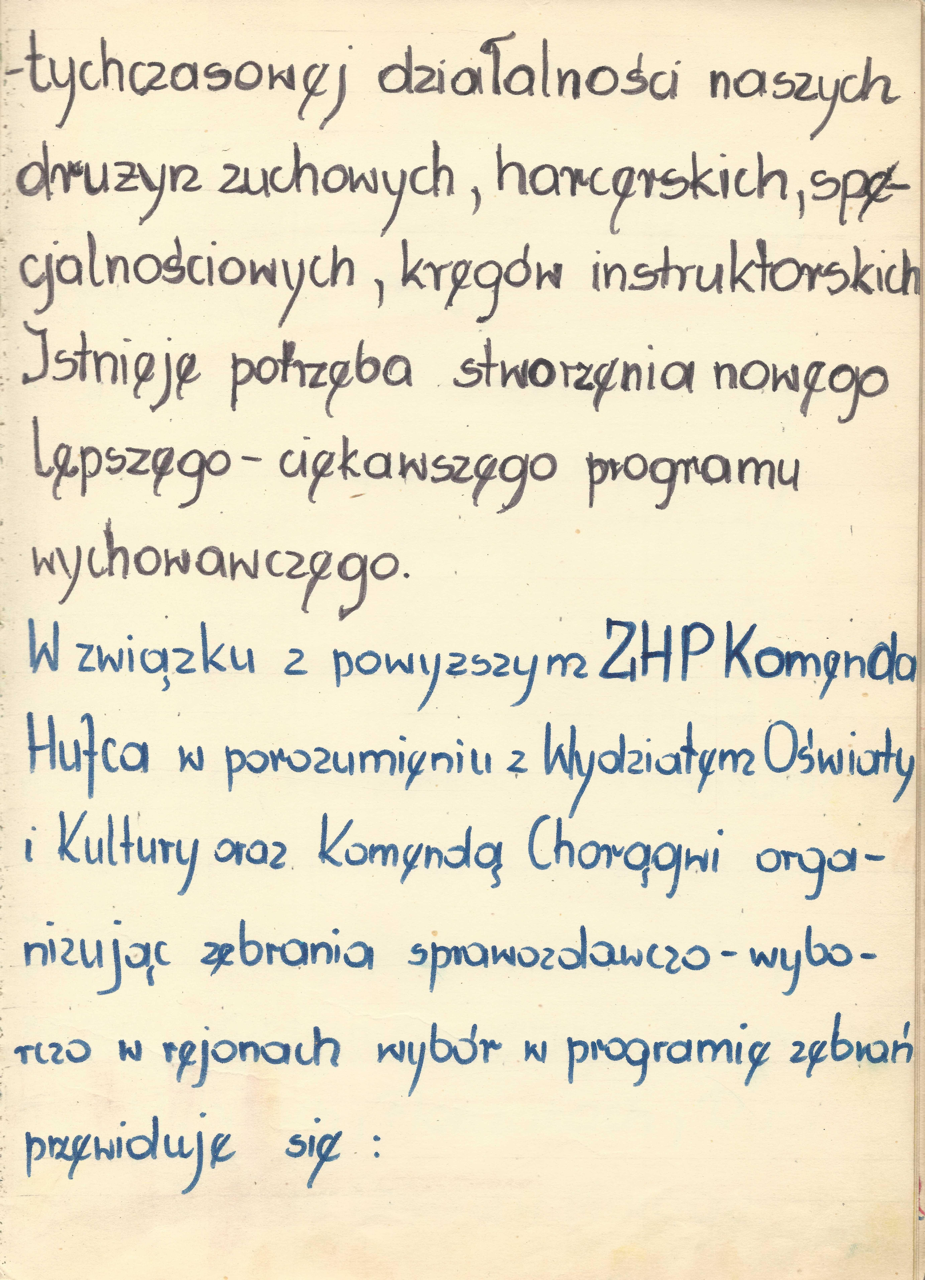 -tychczasowej działalności naszych
drużyn zuchowych, harcerskich, spe-
cjalnościowych, kręgów instruktorskich
Istnieje potrzeba stworzenia nowego
lepszego - ciekawszego programu
wychowawczego.
W związku z powyższym ZHP Komenda
Hufca w porozumieniu z Wydziałem Oświaty
i Kultury oraz Komendą Chorągwi orga-
nizując zebrania sprawozdawczo - wybo-
rczo w rejonach wybór w programie zebrań
przewiduje się :